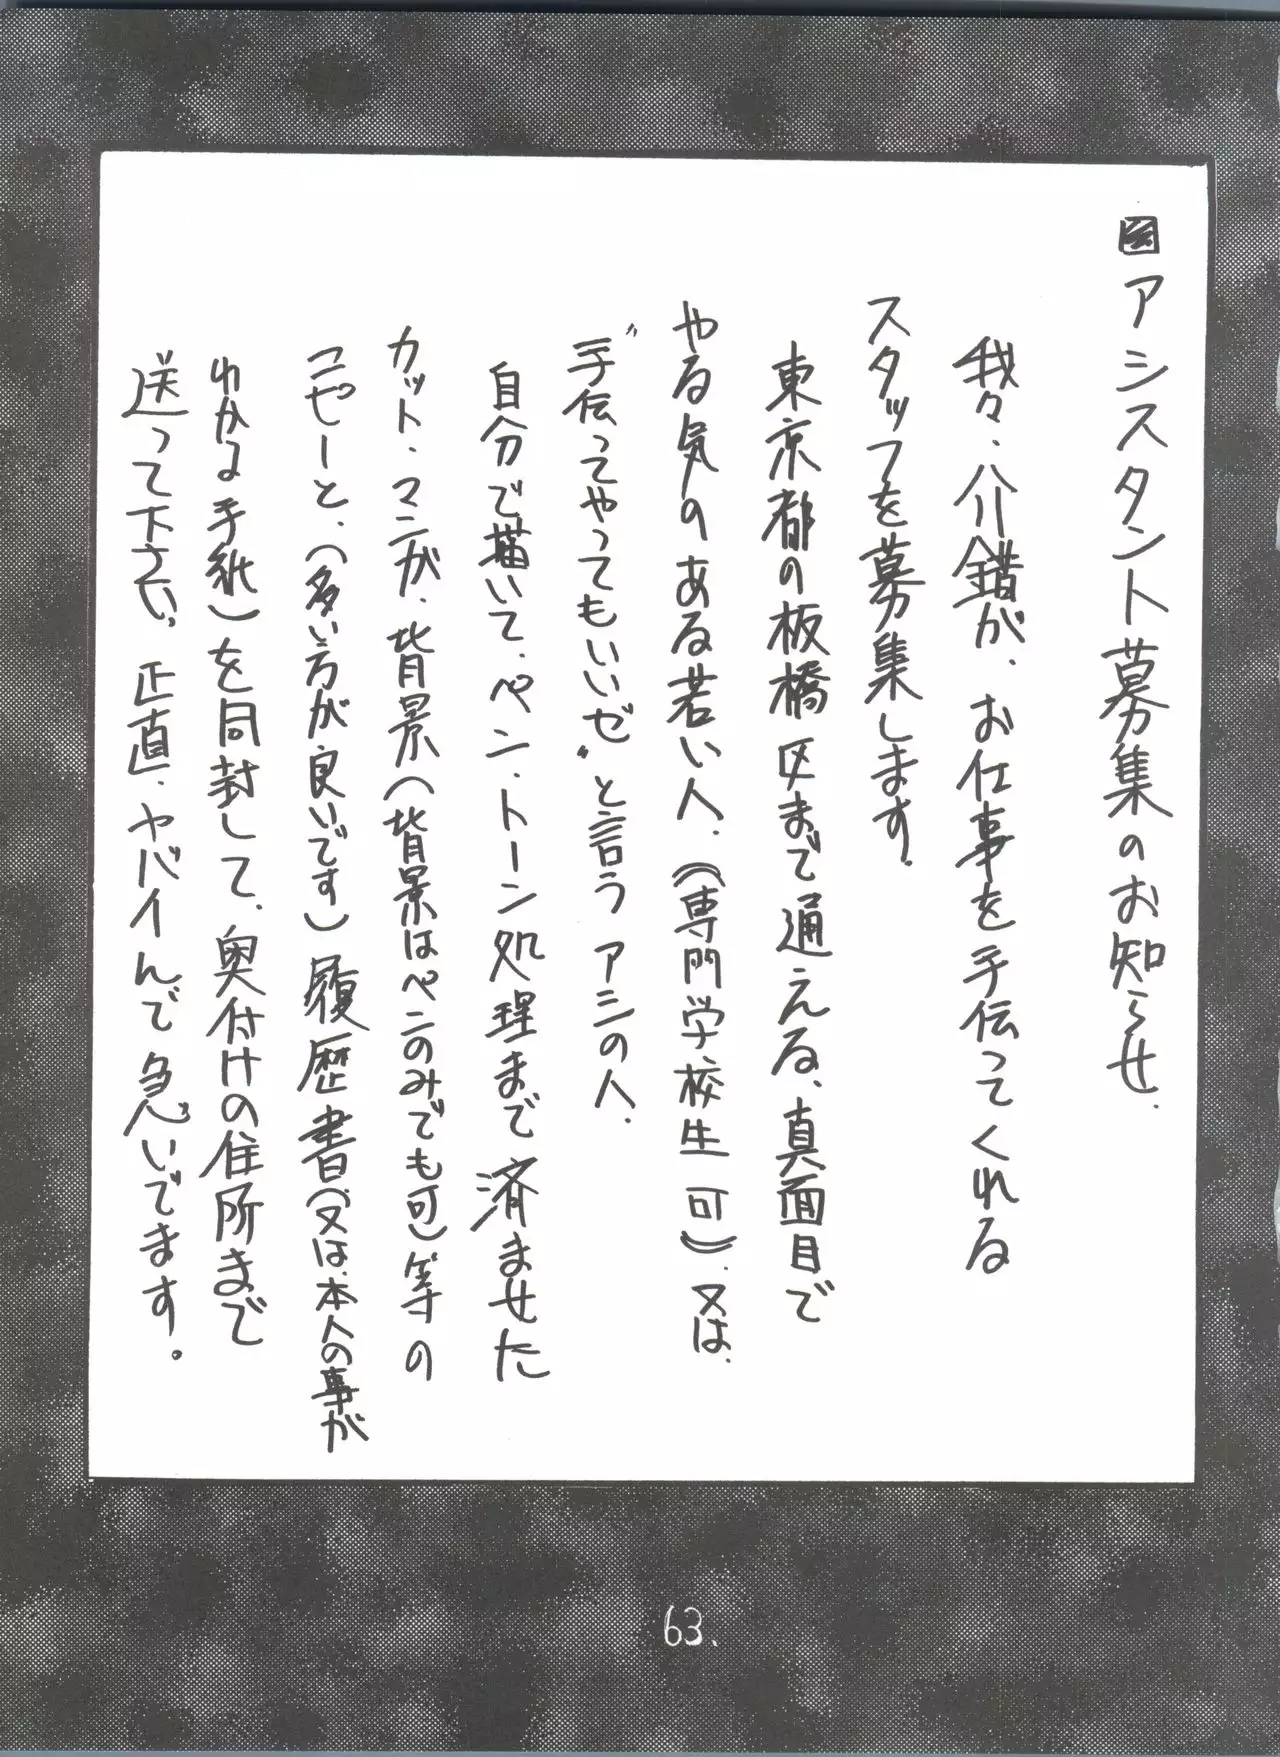 アシスタント募集のお知らせ.
我々・介錯が、お仕事を手伝ってくれる
スタッフを募集します.
東京都の板橋区まで通える、真面目で
やる気のある若い人、《専門学校生可》. 又は.
"手伝ってやってもいいゼ"と言うアシの人.
自分で描いて、ペン、トーン処理まで済ませた
カット、マンガ、背景(背景はペンのみでも可)等の
コピーと、(多い方が良いです)履歴書(又は、本人の事が
わかる手紙)を同封して、奥付けの住所まで
送って下さい。正直、ヤバイんで急いでます。
63.